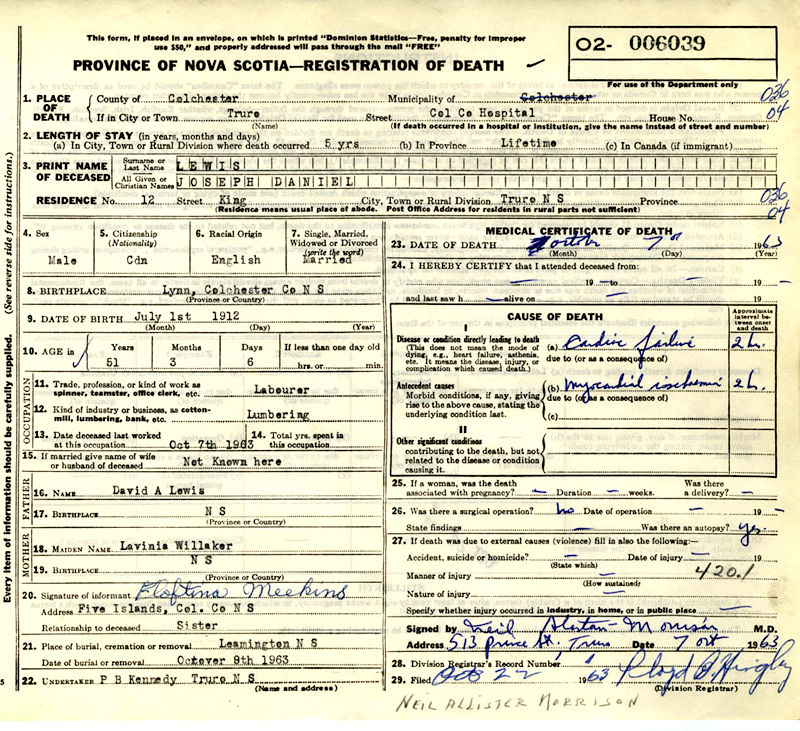 This form, if placed in an envelope, on which is printed "Dominion Statistics—Free, penalty for improper
use $50," and properly addressed will pass through the mail "FREE"
PROVINCE OF NOVA SCOTIA—REGISTRATION OF DEATH
O2- 006039
For use of the Department only
1. PLACE OF DEATH
County of Colchester Municipality of Colchester 036
If in City or Town Truro Street Col Co Hospital House No. 04
(Name) (If death occurred in a hospital or institution, give the name instead of street and number)
2. LENGTH OF STAY (in years, months and days)
(a) In City, Town or Rural Division where death occurred 5 yrs (b) In Province Lifetime (c) In Canada (if immigrant)
3. PRINT NAME OF DECEASED
Surname or Last Name LEWIS
All Given or Christian Names JOSEPH DANIEL
RESIDENCE No. 12 Street King City, Town or Rural Division Truro N S Province 036
(Residence means usual place of abode. Post Office Address for residents in rural parts not sufficient) 04
4. Sex
Male
5. Citizenship
(Nationality)
Cdn
6. Racial Origin
English
7. Single, Married,
Widowed or Divorced
(write the word)
Married
8. BIRTHPLACE Lynn, Colchester Co N S
(Province or Country)
9. DATE OF BIRTH July 1st 1912
(Month) (Day) (Year)
10. AGE in
Years Months Days If less than one day old
51 3 6 hrs. or min.
OCCUPATION
11. Trade, profession, or kind of work as
spinner, teamster, office clerk, etc. Labourer
12. Kind of industry or business, as cotton-
mill, lumbering, bank, etc. Lumbering
13. Date deceased last worked 14. Total yrs. spent in
at this occupation Oct 7th 1963 this occupation
15. If married give name of wife
or husband of deceased Not Known here
FATHER
16. NAME David A Lewis
17. BIRTHPLACE N S
(Province or Country)
MOTHER
18. MAIDEN NAME Lavinia Willaker
19. BIRTHPLACE N S
(Province or Country)
20. Signature of informant Meekins
Address Five Islands, Col. Co N S
Relationship to deceased Sister
21. Place of burial, cremation or removal Leamington N S
Date of burial or removal Octover 9th 1963
22. UNDERTAKER P B Kennedy Truro N S
(Name and address)
MEDICAL CERTIFICATE OF DEATH
23. DATE OF DEATH October 7 1963
(Month) (Day) (Year)
24. I HEREBY CERTIFY that I attended deceased from:
— 19 — to — 19 —
and last saw h — alive on —
CAUSE OF DEATH
Approximate interval between onset and death
I
Disease or condition directly leading to death
(This does not mean the mode of
dying, e.g., heart failure, asthenia,
etc. It means the disease, injury, or
complication which caused death.)
(a) Cardiac failure 2 h.
due to (or as a consequence of)
Antecedent causes
Morbid conditions, if any, giving
rise to the above cause, stating the
underlying condition last.
(b) myocardial ischemia 2 h.
due to (or as a consequence of)
(c)
II
Other significant conditions
contributing to the death, but not
related to the disease or condition
causing it.
25. If a woman, was the death Was there
associated with pregnancy? — Duration — weeks. a delivery? —
26. Was there a surgical operation? no Date of operation — 19 —
State findings — Was there an autopsy? yes
27. If death was due to external causes (violence) fill in also the following:—
Accident, suicide or homicide? — Date of injury — 19
(State which)
Manner of injury — 420.1
(How sustained)
Nature of injury —
Specify whether injury occurred in industry, in home, or in public place —
Signed by Neil Morrison M.D.
Address 513 Prince St. Truro Date 7 Oct 1963
28. Division Registrar's Record Number
29. Filed Oct 22 1963 Lloyd
(Division Registrar)
NEIL ALLISTER MORRISON
Every item of information should be carefully supplied. (See reverse side for instructions.)
5